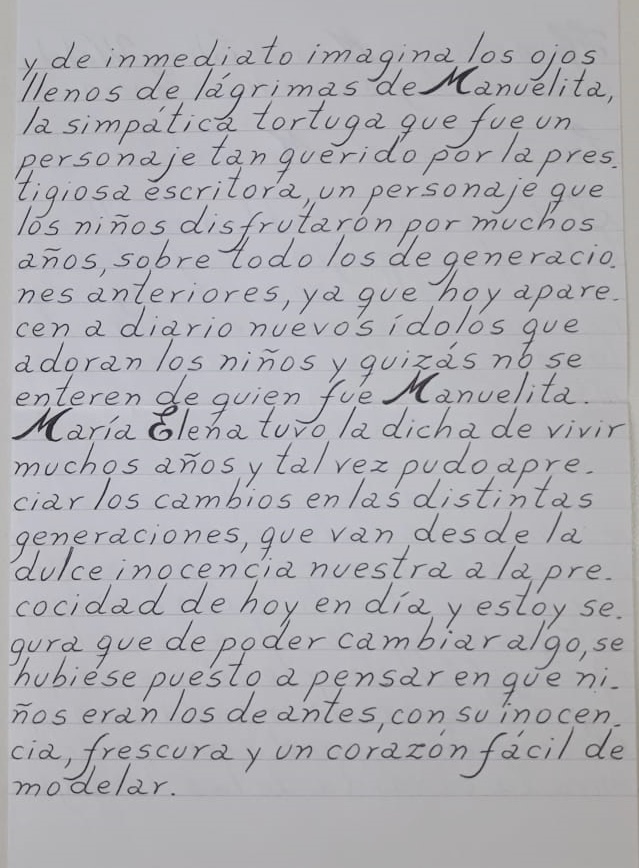 y de inmediato imagina los ojos
llenos de lágrimas de Manuelita,
la simpática tortuga que fue un
personaje tan querido por la pres.
tigiosa escritora, un personaje que
los niños disfrutaron por muchos
años, sobre todo los de generacio.
nes anteriores, ya que hoy apare.
cen a diario nuevos ídolos que
adoran los niños y quizás no se
enteren de quien fue Manuelita.
María Elena tuvo la dicha de vivir
muchos años y tal vez pudo apre.
ciar los cambios en las distintas
generaciones, que van desde la
dulce inocencia nuestra a la pre.
cocidad de hoy en día y estoy se.
gura que de poder cambiar algo, se
hubiese puesto a pensar en que ni.
ños eran los de antes, con su inocen.
cia, frescura y un corazón fácil de
modelar.